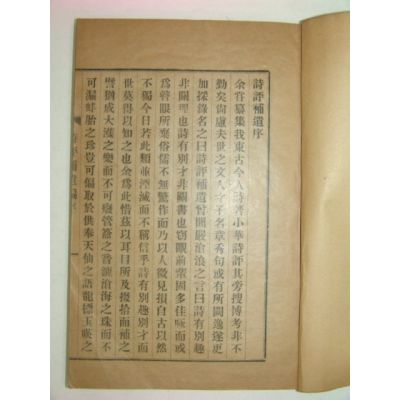 詩評補遺序
余嘗纂集我東古今人詩著小華詩評其旁搜博考非不
勤矣尙慮夫世之文人才子名章秀句或有所闕逸遂更
加採錄名之曰詩評補遺曾聞嚴滄浪之言曰詩有別趣
非關理也詩有別才非關書也窃觀前輩固多佳咏而或
爲聾眼所棄俗儒不無驚作而乃以人微見損自古以然
不獨今日若此類並湮滅而不稱信乎詩有別趣別才而
世莫得以知之也余爲此惜玆以耳目所及掇拾而補之
譬猶成大濩之樂而不可廢管簫之音漉滄海之珠而不
可漏蚌胎之珍豈可偏取於供奉天仙之語龍標玉暎之